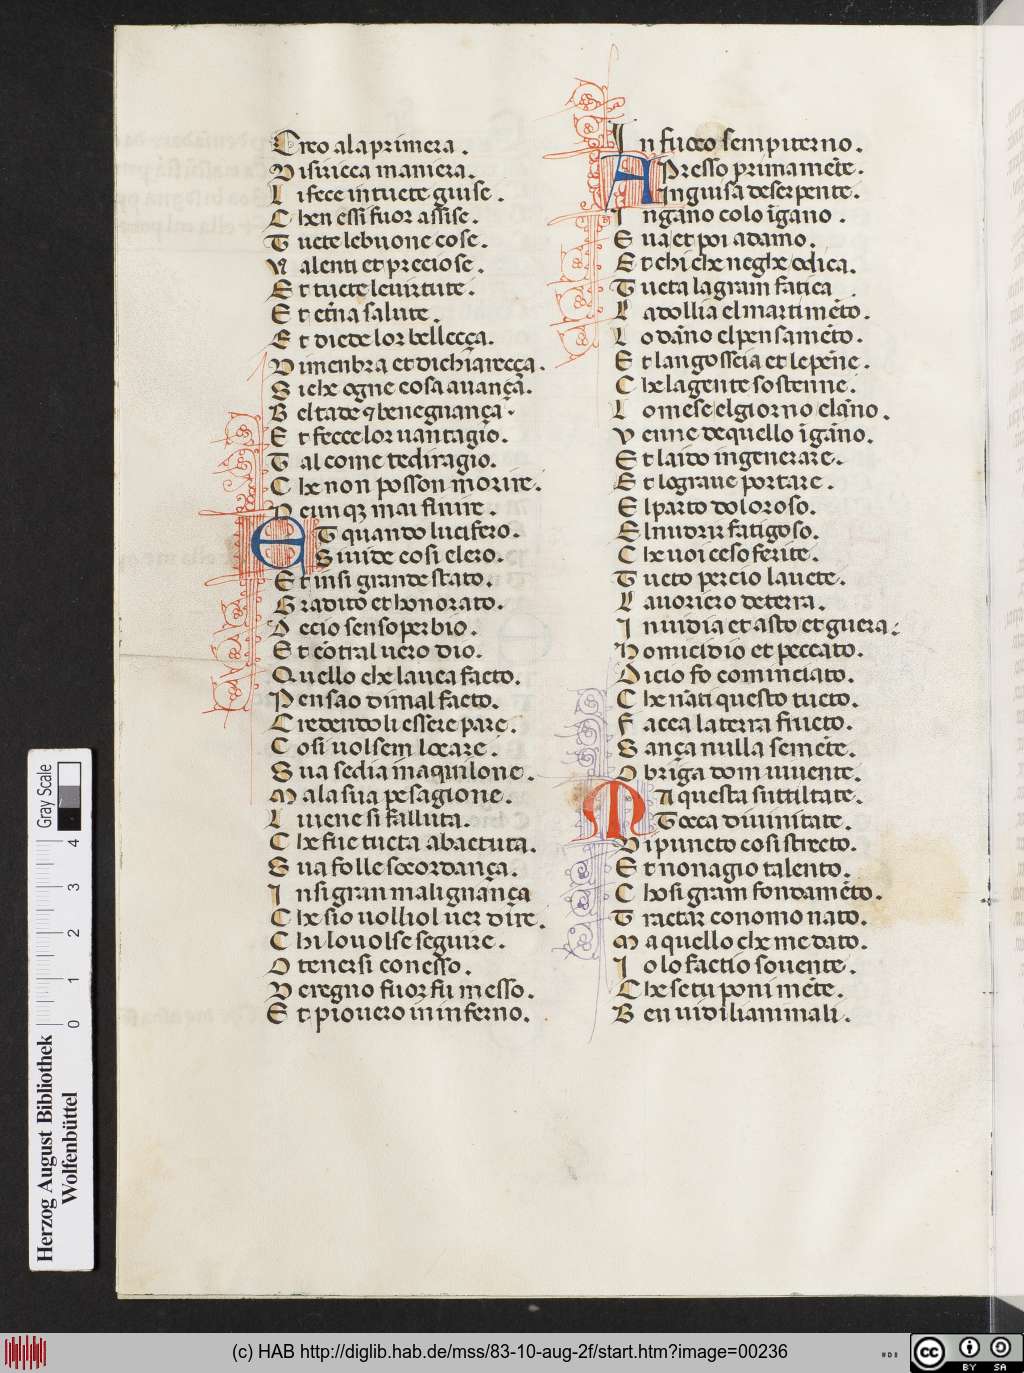 Creo ala primera .
Di si ricca maniera.
Li fece in tucte guise .
Chen essi fuor assise .
Tucte le buone cose .
Valenti et preciose .
Et tucte le uirtute .
Et et̄na salute .
Et diede lor bellecça.
Di menbra et di chiarecça .
Si che ogne cosa auançā.
Beltade ⁊ benegnança .
Et fecce lor uantagio.
Tal come te diragio.
Che non posson morire .
Ne unqꝫ mai finire .
ET quando lucifero .
Si uide cosi clero.
Et in si grande stato.
Gradito et honorato.
De cio sen soperbio .
Et cōtral uero dio.
Quello che lauea facto.
Pensao di mal facto.
Credendoli essere pare .
Cosi uolsem locare .
Sua sedia in aquilone .
Ma la sua pesagione .
Li uene si falluta.
Che fue tucta abactuta.
Sua folle socordança .
In si gran malignança
Che sio uollio l uer dire .
Chi lo uolse seguire .
O tenersi con esso .
De regno fuor fu messo .
Et piouero in inferno.
In fuoco sempiterno .
APresso primamēte .
In guisa de serpente .
Ingāno colo īgano .
Eua et poi adamo.
Et chi che neghe o dica .
Tucta la gram fatica
La dollia el martimēto.
Lo dāno el pensamēto.
Et langosscia et le pēne .
Che la gente sostenne .
Lo mese el giorno el āno .
Venne de quello īgāno.
Et laido ingenerare .
Et lo graue portare .
El parto doloroso.
El nudrir fatigoso.
Che uoi ce soferite .
Tucto per cio lauete .
Lauoriero de terra .
Inuidia et asto et guera .
Homicidio et peccato.
Di cio fo cominciato.
Che nāti questo tucto.
Facea la terra fructo.
Sança nulla semēte .
O briga dom uiuente .
MA questa suttiltate .
Tocca diuinitate .
Di puncto cosi strecto.
Et non agio talento.
Cho si gram fondamēto.
Tractar con omo nato.
Ma quello che me dato.
Io lo factio souente .
Che se tu poni mēte .
Ben uidi li animali .
Herzog August Bibliothek
Wolfenbüttel
Gray Scale
0 1 2 3 4
(c) HAB http://diglib.hab.de/mss/83-10-aug-2f/start.htm?image=00236
cc BY SA